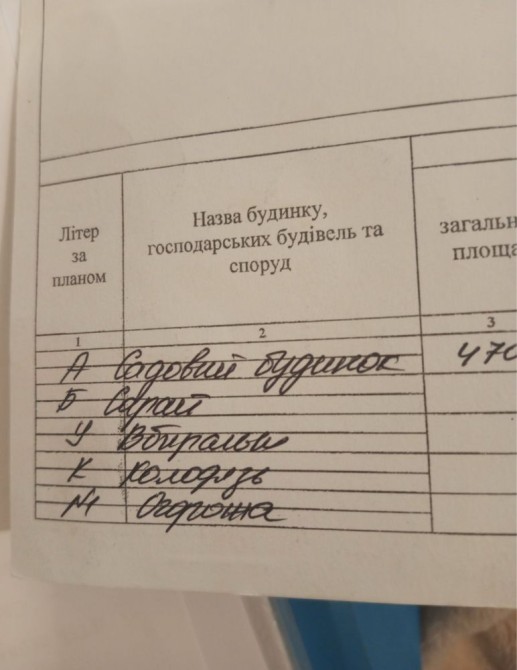 Літер
за
планом
Назва будинку,
господарських будівель та
споруд
загальн
площа
1
2
3
А Садовий будинок 470
Б Сарай
У Вбиральня
К Колодязь
№1 Огорожа